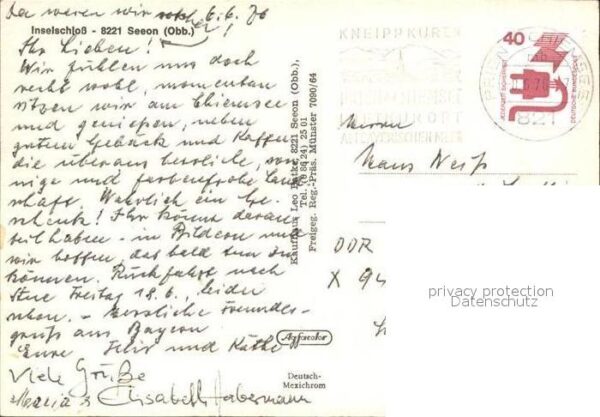 Da waren wir
6.6.76
Inselschloß - 8221 Seeon (Obb.)
Ihr Lieben!
Wir fühlen uns doch
recht wohl, momentan
sitzen wir am Chiemsee
und genießen, neben
gutem Gebäck und Kaffee
die überaus herrliche, son-
nige und farbenfrohe Land-
schaft. Wahrlich ein Ge-
schenk! Ihr könnt daran
teilhaben - in Bildern und
wir hoffen, das bald tun zu
können. Rückfahrt nach
Freitag 18.6., leider
schon. - Herzliche Freundes-
grüße aus Bayern
Eure Felix und Käthe
Viele Grüße
Maria & Elisabeth Habermann
Kaufhaus Leo Patke, 8221 Seeon (Obb.),
Tel. (0 86 24) 25 01
Freigeg. Reg.-Präs. Münster 7090/64
Agfacolor
Deutsch-
Mexichrom
KNEIPPKUREN
PRIEN
821
40
DEUTSCHE BUNDESPOST
Herrn
Hans
DDR
X 94
privacy protection
Datenschutz